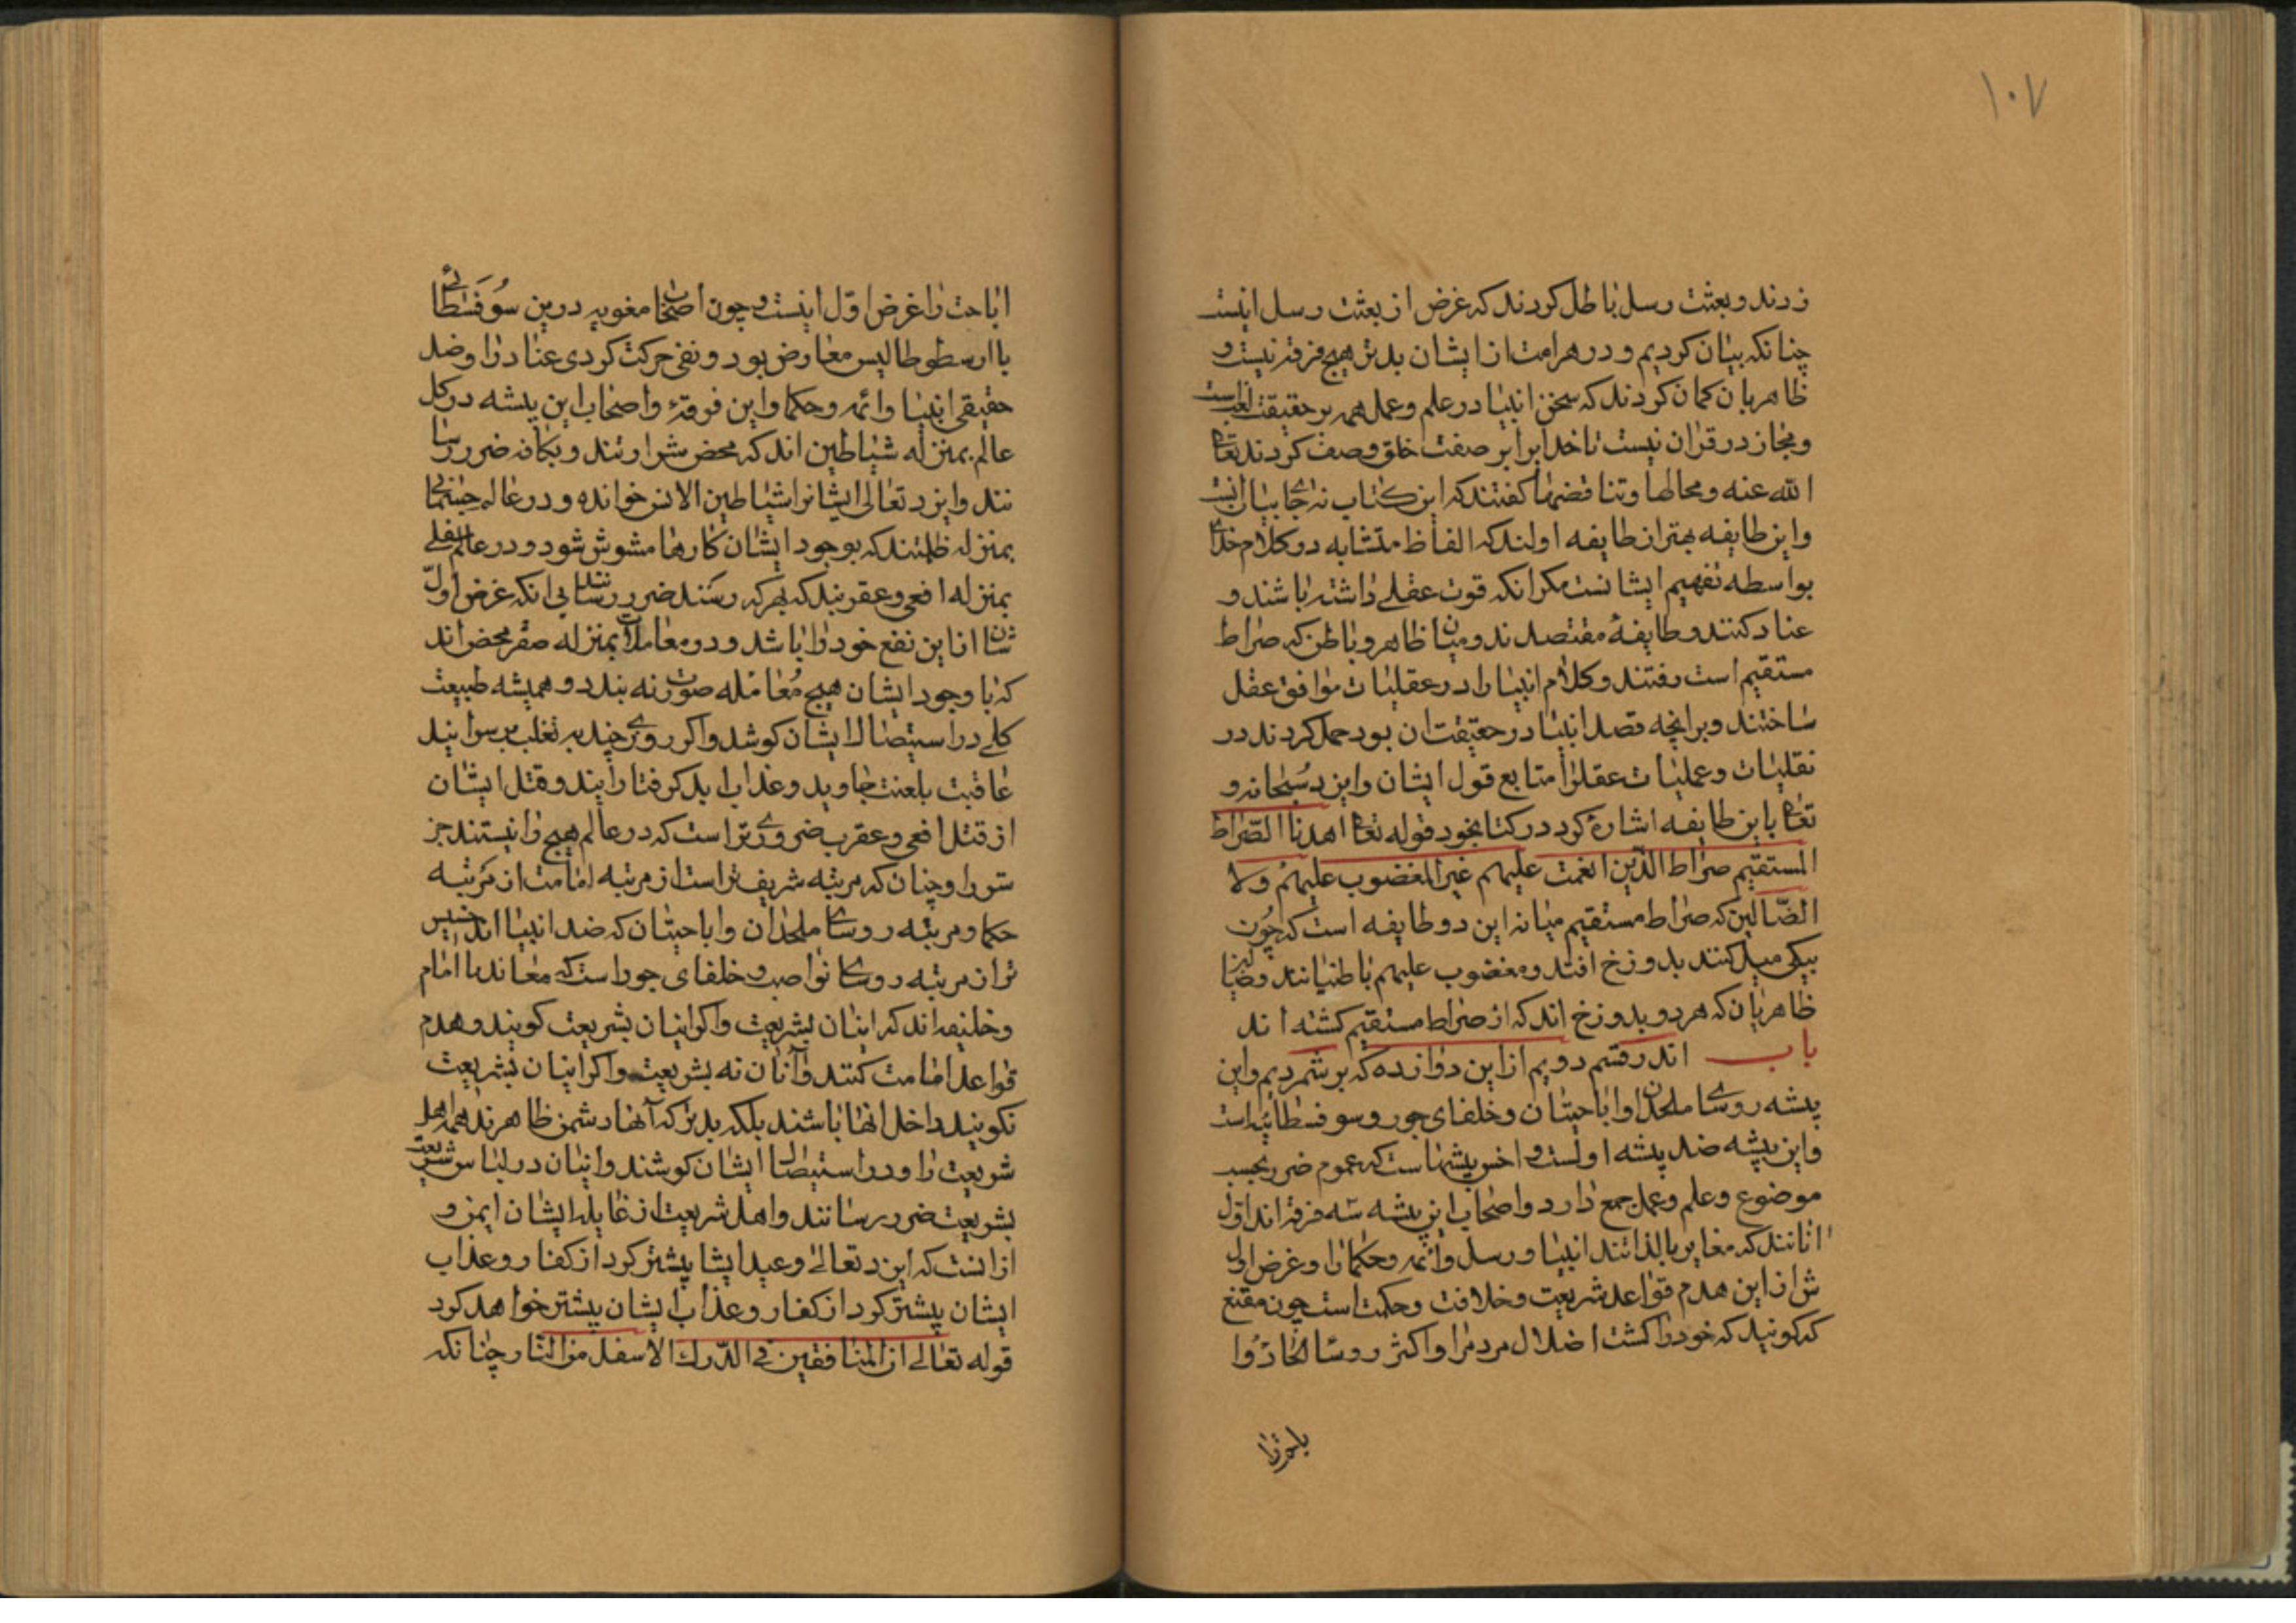 ١٠٧
زدند و بعثت رسل باطل کردند که غرض از بعثت رسل اینست
چنانکه بیان کردیم و در هر امت از ایشان بدتر هیچ فرقه نیست و
ظاهریان کمان کردند که سخن انبیا در علم و عمل همه بر حقیقت لغب است
و مجاز در قران نیست تا خدا برابر صفت خلق وصف کردند تعا
الله عنه و محالها و تناقضها کفتند که این کتاب نه جا بیان انست
و این طایفه بهتر از طایفه اولند که الفاظ متشابه در کلام خدا
بواسطه تفهیم ایشانست مکر انکه قوت عقلی داشته باشند و
عناد کنند و طایفهٔ مقتصدند و میان ظاهر و باطن که صراط
مستقیم است رفتند و کلام انبیا را در عقلیات موافق عقل
ساختند و برانچه قصد انبیا در حقیقت ان بود حمل کردند در
نقلیات و عملیات عقل را متابع قول ایشان و ایزد سبحانه و
تعا باین طایفه اشارة کرد در کتاب خود قوله تعا اهدنا الصراط
المستقیم صراط الذین انعمت علیهم غیر المغضوب علیهم ولا
الضالین که صراط مستقیم میانه این دو طایفه است که چون
بیکی میل کنند بدوزخ افتد و مغضوب علیهم باطنیانند و ضالین
ظاهریان که هر دو بدوزخ اند که از صراط مستقیم کشته اند
باب اندر قسم دویم از این دوازده که بر شمردیم و این
پیشه روسای ملحدان و اباحیتان و خلفای جور و سوفسطائیه است
و این پیشه ضد پیشه اولست و اخس پیشهاست که عموم ضر بحسب
موضوع و علم و عمل جمع دارد و اصحاب این پیشه سه فرقه اند اول
انانند که مغایر بالذاتند انبیا و رسل و ائمه و حکما را و غرض اول
ش از این هدم قواعد شریعت و خلافت و حکمت است چون مقنع
که کویند که خود را کشت اضلال مردم را و اکثر روسا الحاد را
اباحت را غرض اول اینست و چون اصحاب مغویه درین سوفسطائی
با ارسطوطالیس معارض بود و نفی حرکت کردی عناد را و ضد
حقیقی انبیا و ائمه و حکما و این فرقهٔ و اصحاب این پیشه در کل
عالم بمنزله شیاطین اند که محض شرارتند و بکافه ضرر رسا
نند و ایزد تعالی ایشانرا شیاطین الانس خوانده و در عالم جسمانی
بمنزله ظلمتند که بوجود ایشان کارها مشوش شود و در عالم سفلی
بمنزله افعی و عقربند که بهر که رسند ضرر رسانند بی انکه غرض اول
شان از این نفع خود را باشد و در معاملات بمنزله صفر محض اند
که با وجود ایشان هیچ معامله صورت نه بندد و همیشه طبیعت
کلی در استیصال ایشان کوشد و اکر روزی چند به تغلب بر سر ایند
عاقبت بلعنت جاوید و عذاب ابد کرفتار ایند و قتل ایشان
از قتل افعی و عقرب ضروری تر است که در عالم هیچ را نیستند جز
شر را و چنان که مرتبه شریف تر است از مرتبه امامت از مرتبه
حکما و مرتبه روسای ملحدان و اباحیتان که ضد انبیا اند خسیس
تر از مرتبه روسای نواصب و خلفای جور است که معاند با امام
و خلیفه اند که اینان بشریعت و اکر اینان بشریعت کویند و هدم
قواعد امامت کنند و آنان نه بشریعت و اکر اینان بشریعت
نکویند داخل انها باشند بلکه بدتر که آنها دشمن ظاهرند همه اهل
شریعت را و در استیصال ایشان کوشند و اینان در لباس شریعت
بشریعت ضرر رسانند و اهل شریعت از غایله ایشان ایمن و
از انست که ایزد تعالی وعید ایشا بیشتر کرد از کفار و عذاب
ایشان بیشتر کرد از کفار و عذاب ایشان بیشتر خواهد کرد
قوله تعالی ان المنافقین فی الدرك الاسفل من النار چنانکه